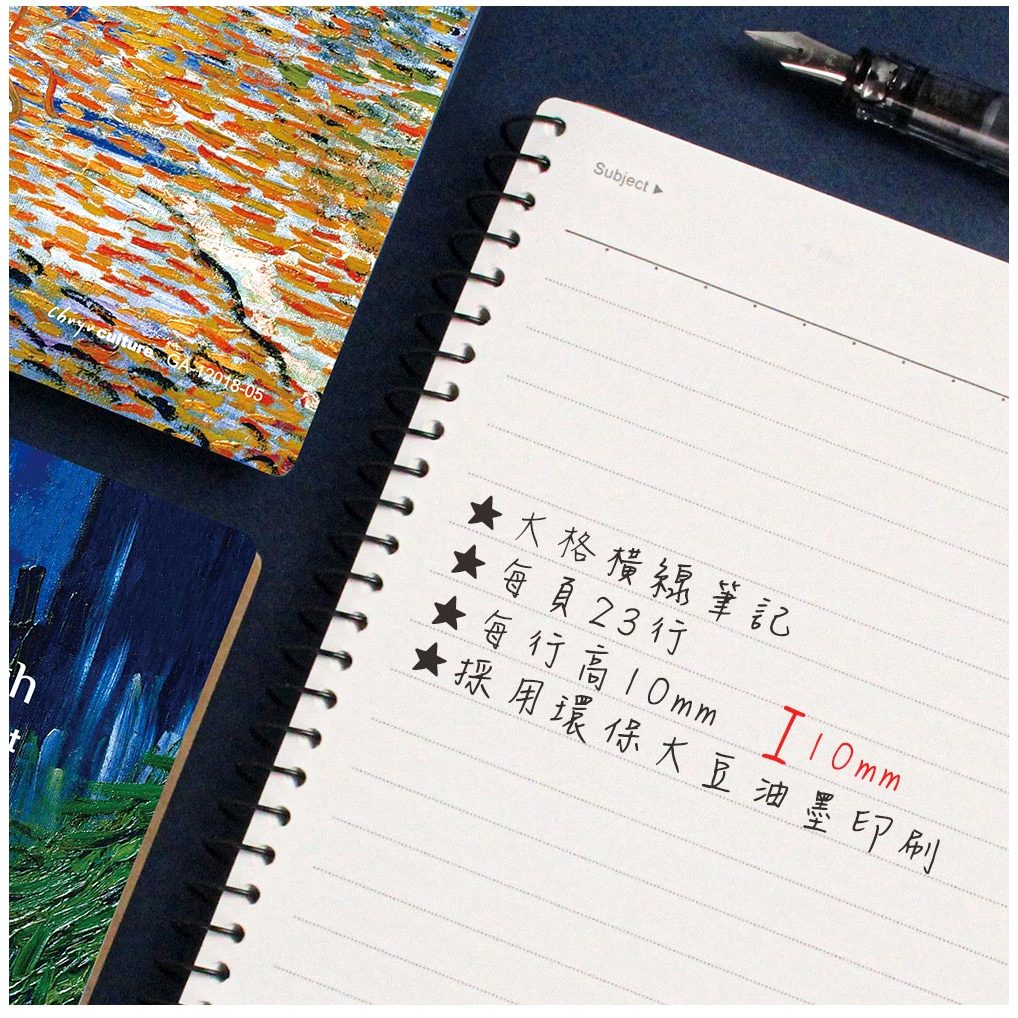 Subject ▶
chryʀculture GA 12018-05
★大格橫線筆記
★每頁23行
★每行高10mm
10mm
★採用環保大豆油墨印刷
th
t